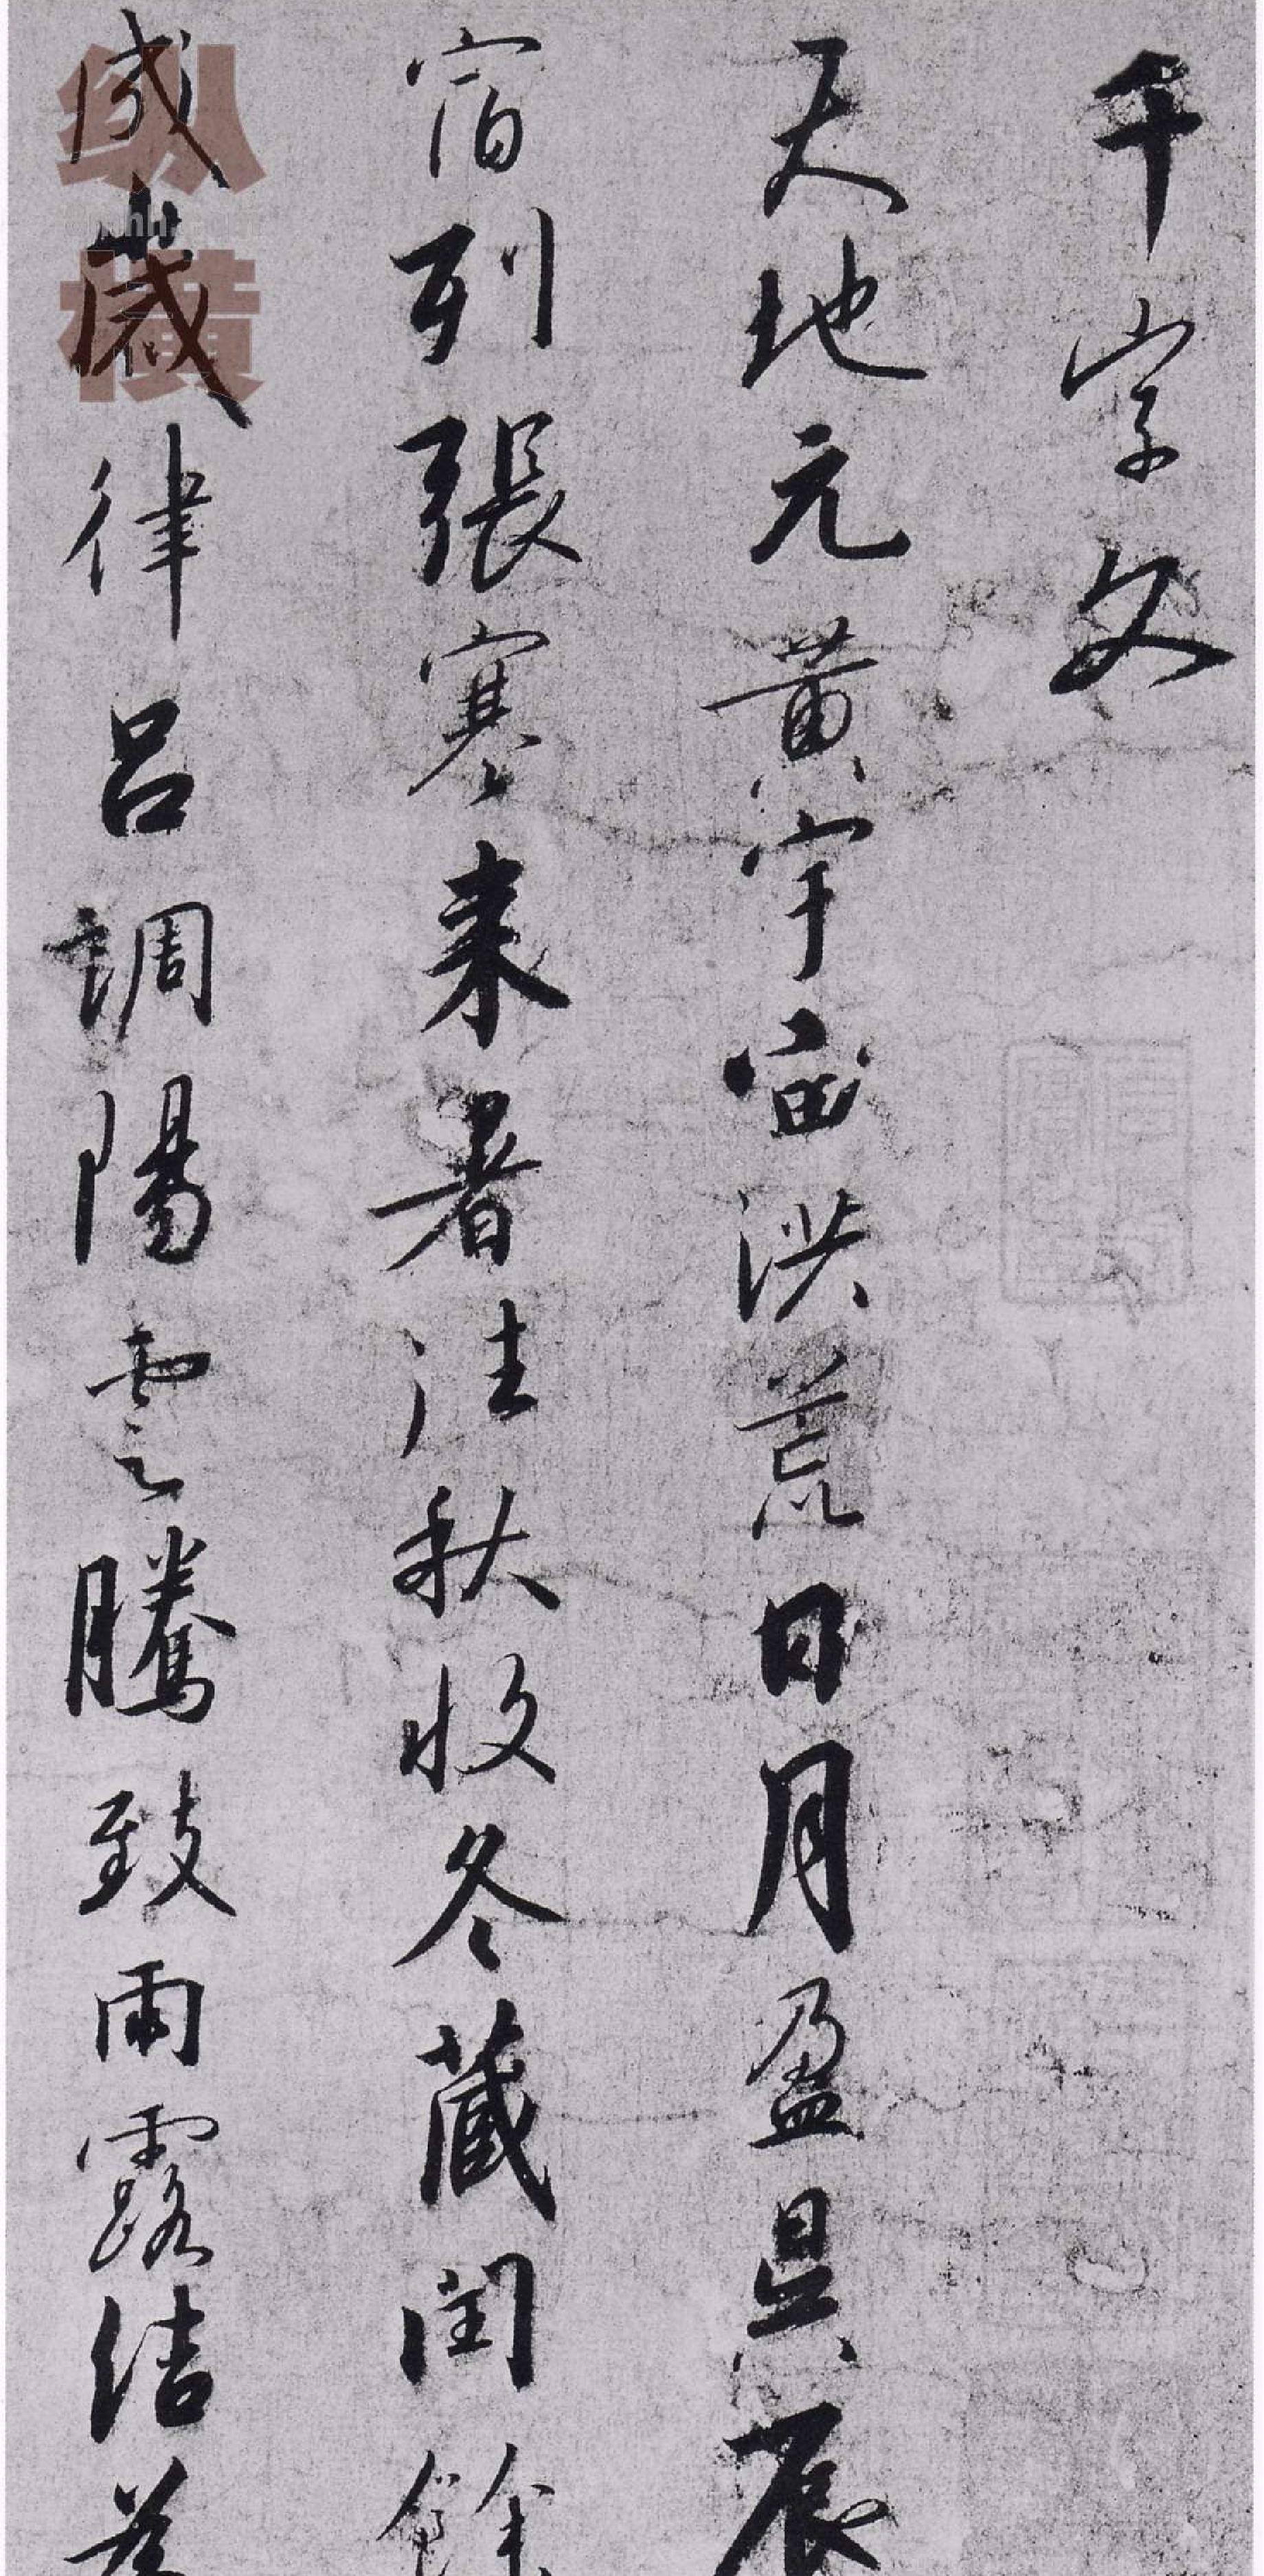 千字文
天地元黃宇宙洪荒日月盈昃辰
宿列張寒来暑往秋收冬藏閏餘
成歲律呂調陽雲騰致雨露結為
纵横